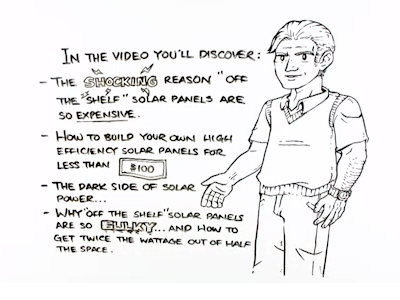 IN THE VIDEO YOU'LL DISCOVER:
- THE SHOCKING REASON "OFF
THE "SHELF" SOLAR PANELS ARE
SO EXPENSIVE.
- HOW TO BUILD YOUR OWN HIGH
EFFICIENCY SOLAR PANELS FOR
LESS THAN $100
- THE DARK SIDE OF SOLAR
POWER...
- WHY "OFF THE SHELF" SOLAR PANELS
ARE SO BULKY... AND HOW TO
GET TWICE THE WATTAGE OUT OF HALF
THE SPACE.